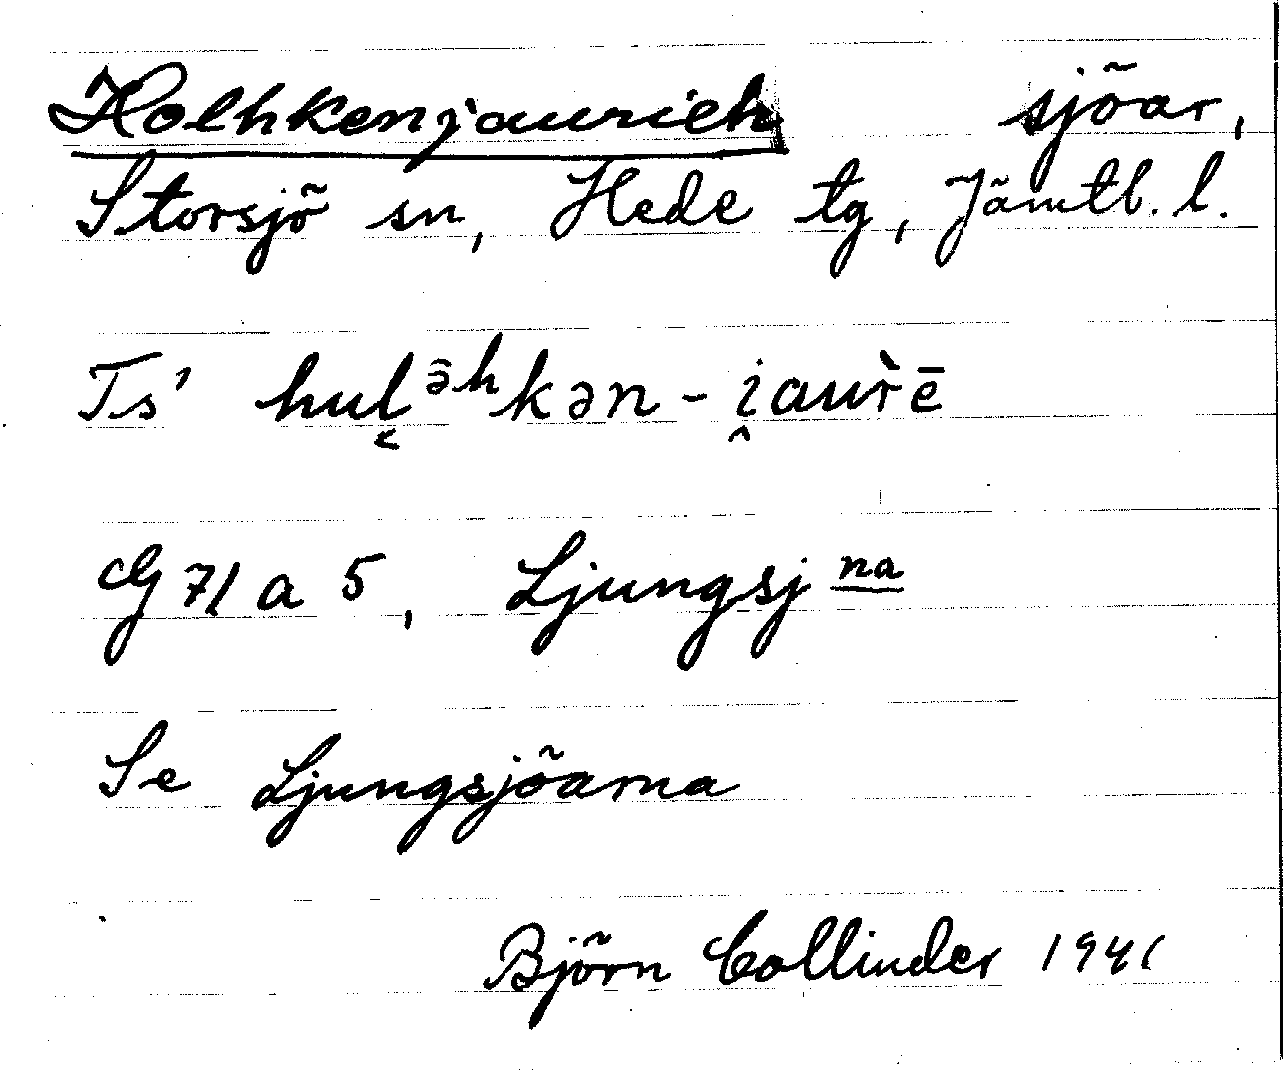 Holhkenjaurieh sjöar,
Storsjö sn, Hede tg, Jämtl. l.
Ts' hul̬ᵊ̄ʰkən-i̭aur̀ē
G 71 a 5, Ljungsj na
Se Ljungsjöarna
Björn Collinder 1941